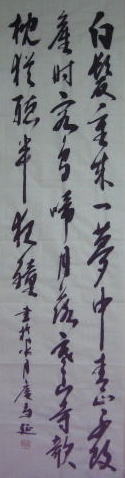 白髮重來一夢中青山不改
舊時容烏啼月落寒山寺欹
枕猶聽半夜鐘 書於